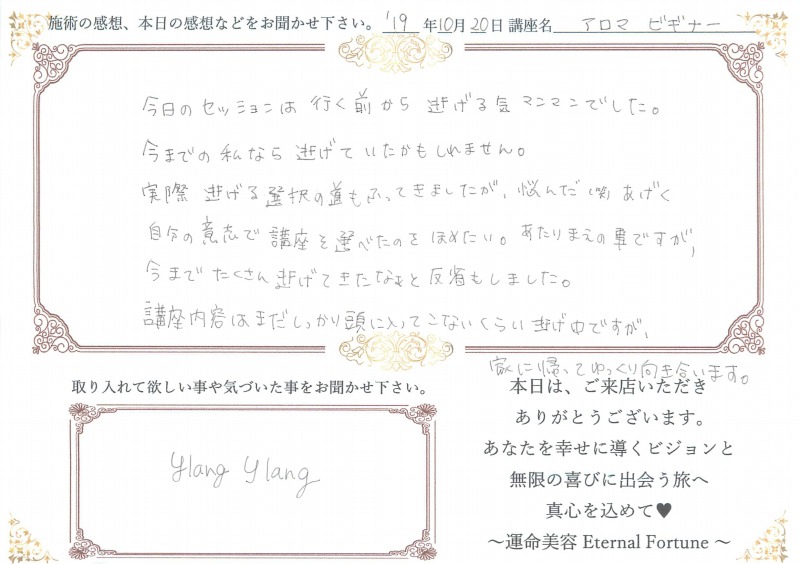 施術の感想、本日の感想などをお聞かせ下さい。 '19 年10月20日 講座名 アロマ ビギナー
今日のセッションは 行く前から 逃げる気マンマンでした。
今までの私なら 逃げていたかもしれません。
実際 逃げる選択の道もふってきましたが、悩んだ(笑)あげく
自分の意志で 講座を選べたのをほめたい。あたりまえの事ですが、
今まで たくさん逃げてきたなぁと反省もしました。
講座内容はまだしっかり頭に入ってこないくらい 逃げ中ですが、
家に帰ってゆっくり向き合います。
取り入れて欲しい事や気づいた事をお聞かせ下さい。
ylang ylang
本日は、ご来店いただき
ありがとうございます。
あなたを幸せに導くビジョンと
無限の喜びに出会う旅へ
真心を込めて♥
～運命美容 Eternal Fortune ～